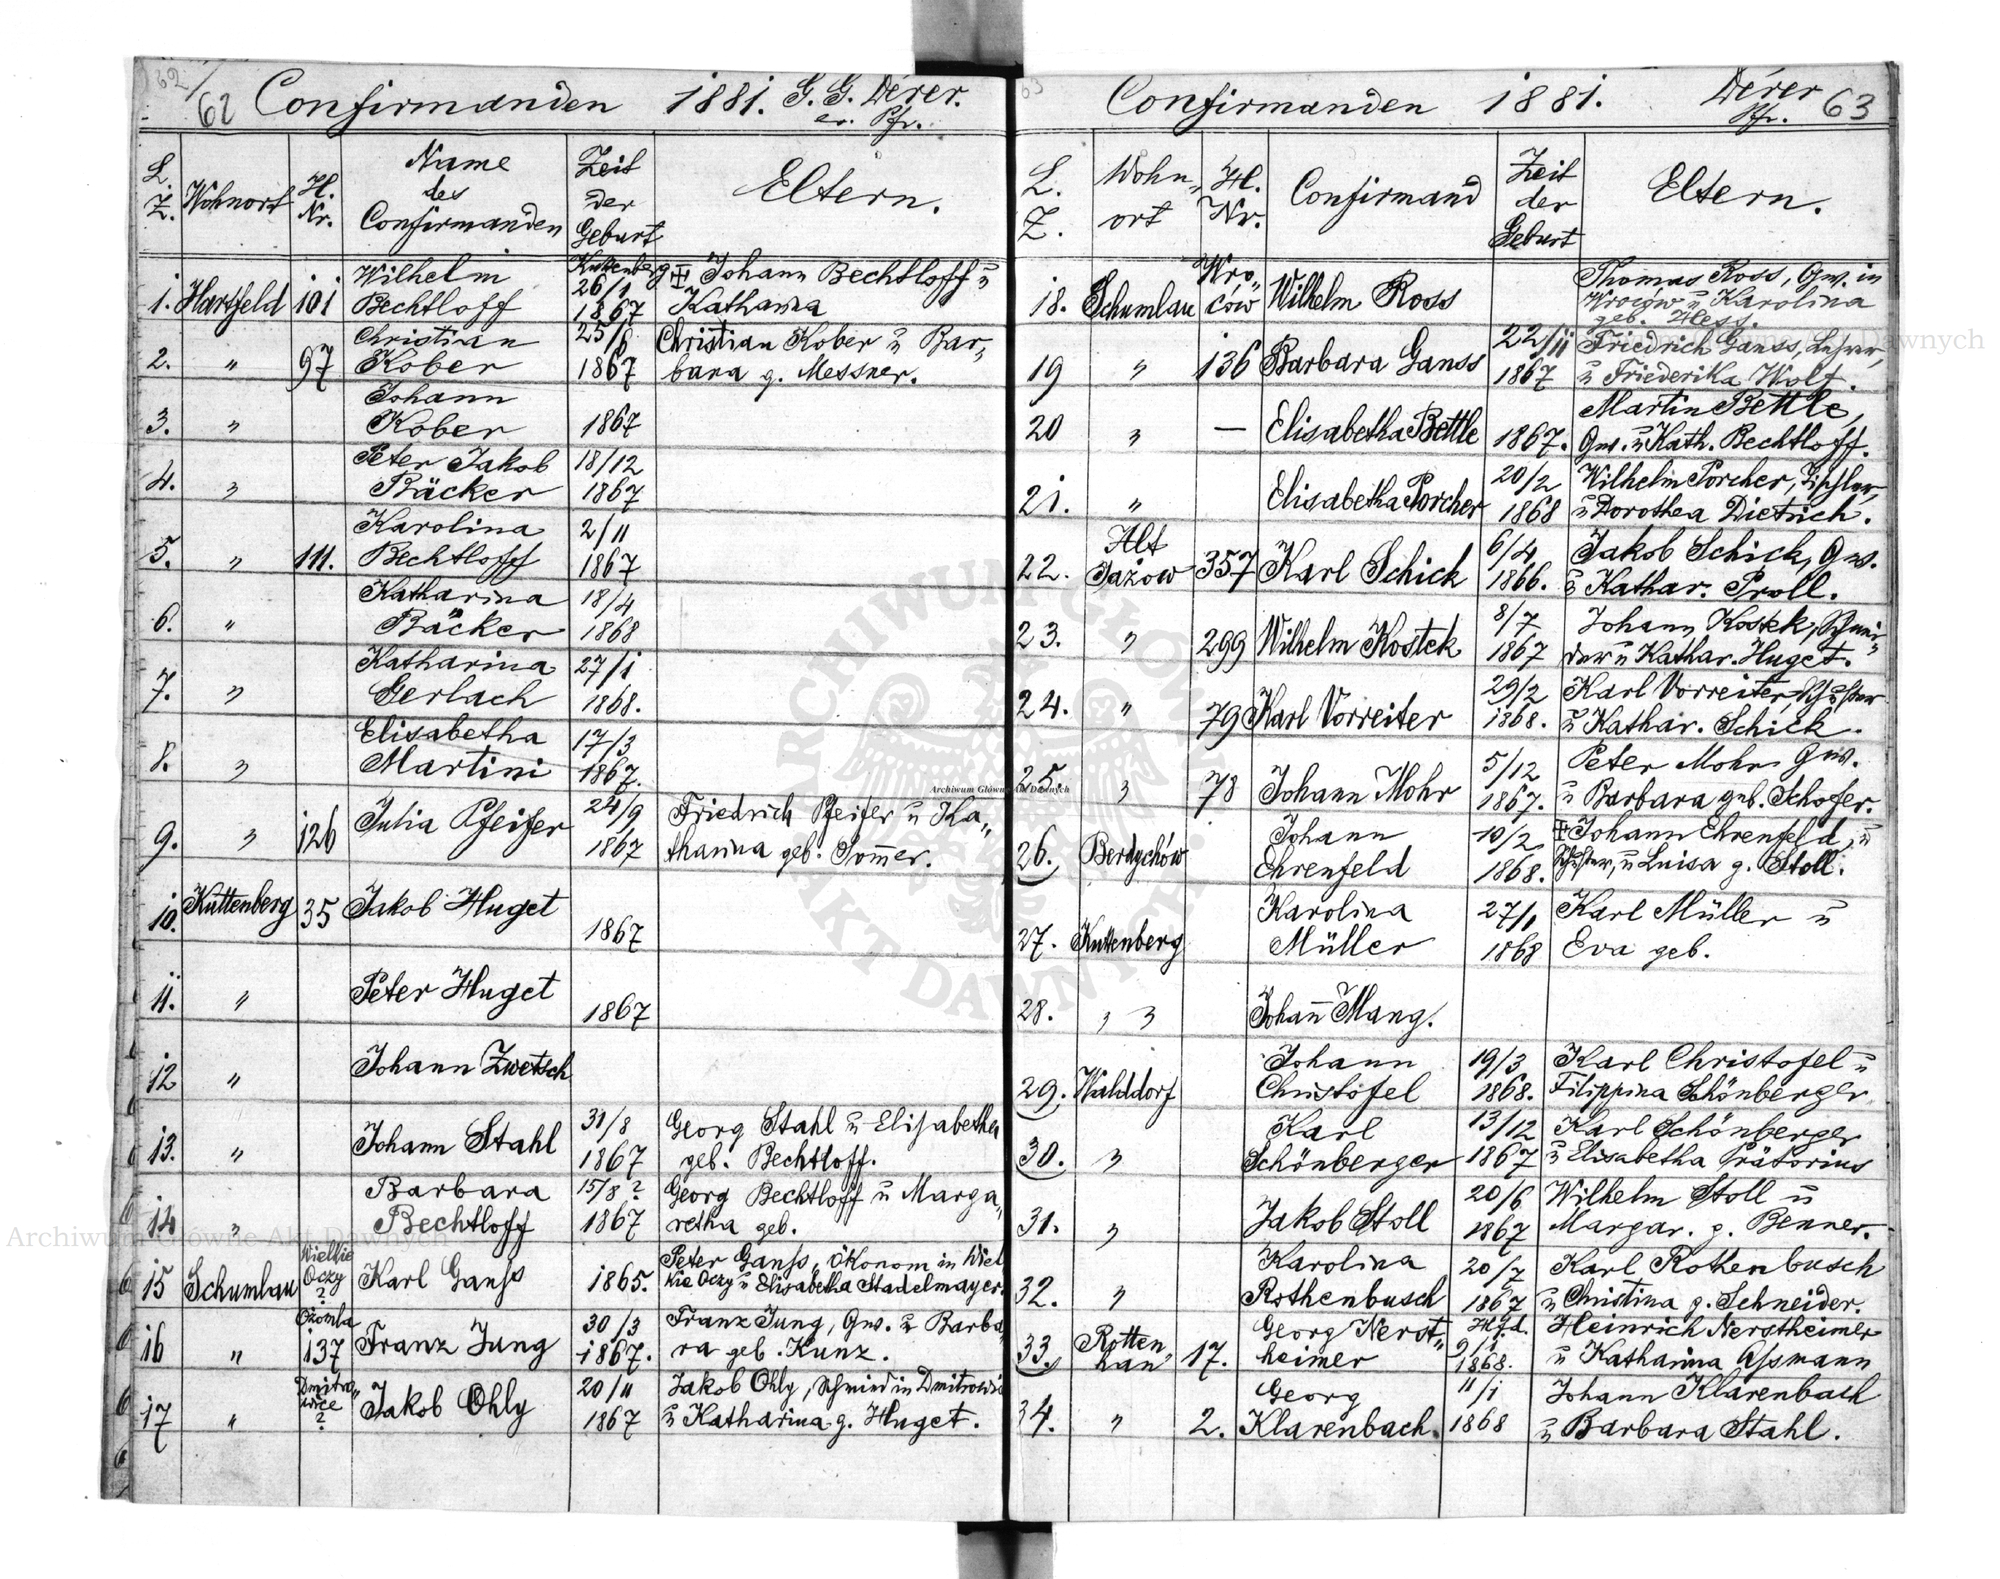 62 Confirmanden 1881. G. G. Dérer.
ev. Pfr.
L. Z. Wohnort H. Nr. Name des Confirmanden Zeit der Geburt Eltern.
1. Hartfeld 101 Wilhelm Bechtloff Kuttenberg 26/1 1867 Johann Bechtloff u Katharina
2. " 97 Christian Kober 25/6 1867 Christian Kober u Bar„ bara g. Messner.
3. " Johann Kober 1867
4. " Peter Jakob Bäcker 18/12 1867
5. " 111. Karolina Bechtloff 2/11 1867
6. " Katharina Bäcker 18/4 1868
7. " Katharina Gerlach 27/1 1868.
8. " Elisabetha Martini 17/3 1867.
9. " 126 Julia Pfeifer 24/9 1867 Friedrich Pfeifer u Ka„ tharina geb. Som̄er.
10. Kuttenberg 35 Jakob Huget 1867
11. " Peter Huget 1867
12 " Johann Zwetsch
13. " Johann Stahl 31/8 1867 Georg Stahl u Elisabetha geb. Bechtloff.
14 " Barbara Bechtloff 15/8? 1867 Georg Bechtloff u Marga„ retha geb.
15 Schumlau Wielkie Oczy ? Karl Ganß 1865. Peter Ganß, Ökonom in Wiel kie Oczy u Elisabetha Stadelmayer.
16 " Ożomla 137 Franz Jung 30/3 1867. Franz Jung, Gw. u Barba„ ra geb. Kunz.
17 " Dmitro„ wice ? Jakob Ohly 20/11 1867 Jakob Ohly, Schmied in Dmitrowic u Katharina g. Huget.
Confirmanden 1881. Dérer Pfr. 63
L. Z. Wohn„ ort H. Nr. Confirmand Zeit der Geburt Eltern.
18. Schumlau Wro„ ców Wilhelm Ross Thomas Ross, Gw. in Wroców u Karolina geb. Hess.
19 " 136 Barbara Ganss 22/11 1867 Friedrich Ganss, Lehrer, u Friederika Wolf.
20 " — Elisabetha Bettle 1867. Martin Bettle, Gw. u Kath. Bechtloff.
21. " Elisabetha Porcher 20/2 1868 Wilhelm Porcher, Tischler, u Dorothea Dietrich.
22. Alt Jażow 357 Karl Schick 6/4 1866. Jakob Schick, Gw. u Kathar. Proll.
23. " 299 Wilhelm Kostek 8/7 1867 Johann Kostek, Schnei„ der u Kathar. Huget.
24. " 79 Karl Vorreiter 29/2 1868. Karl Vorreiter, Schuster u Kathar. Schick.
25. " 78 Johann Mohr 5/12 1867. Peter Mohr Gw. u Barbara geb. Schofer.
26. Berdychów Johann Ehrenfeld 10/2 1868. Johann Ehrenfeld, Schuster, u Luisa g. Stoll.
27. Kuttenberg Karolina Müller 27/1 1868 Karl Müller u Eva geb.
28. " " Johan̄ Mang.
29. Walddorf Johann Christofel 19/3 1868. Karl Christofel u Filippina Schönberger
30. " Karl Schönberger 13/12 1867 Karl Schönberger u Elisabetha Prätorius
31. " Jakob Stoll 20/6 1867 Wilhelm Stoll u Margar. g. Benner.
32. " Karolina Rothenbusch 20/7 1867 Karl Rothenbusch u Christina g. Schneider.
33. Rotten„ han 17. Georg Nerst„ heimer Htfd. 9/1 1868. Heinrich Nerstheimer u Katharina Aßmann
34. " 2. Georg Klarenbach. 11/1 1868 Johann Klarenbach u Barbara Stahl.
Archiwum Główne Akt Dawnych
ARCHIWUM GŁÓWNE AKT DAWNYCH